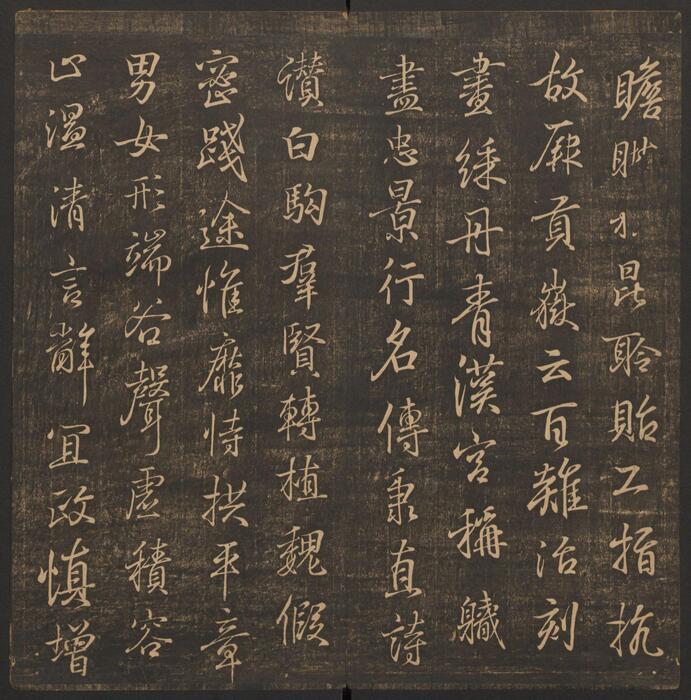 瞻才昆聆貽工指抗
故厥貢嶽云百難治刻
畫綵丹青漢宮稱軄
盡忠景行名傳秉直詩
讚白駒羣賢轉植魏假
密踐途惟靡恃拱平章
男女形端谷聲虛積容
止溫清言辭宜政慎增